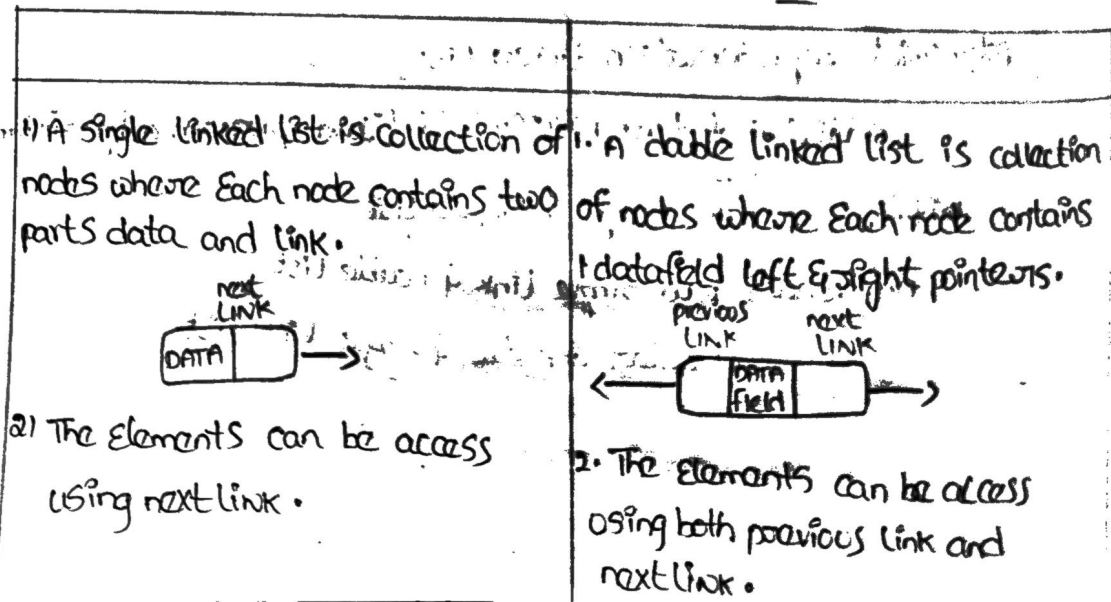 1) A single linked list is collection of
nodes where Each node contains two
parts data and link.
next
LINK
DATA
2) The Elements can be access
using next link.
1. A double linked list is collection
of nodes where Each node contains
1 datafield left & right pointers.
previous
LINK
next
LINK
DATA
field
2. The Elements can be access
using both previous link and
next link.